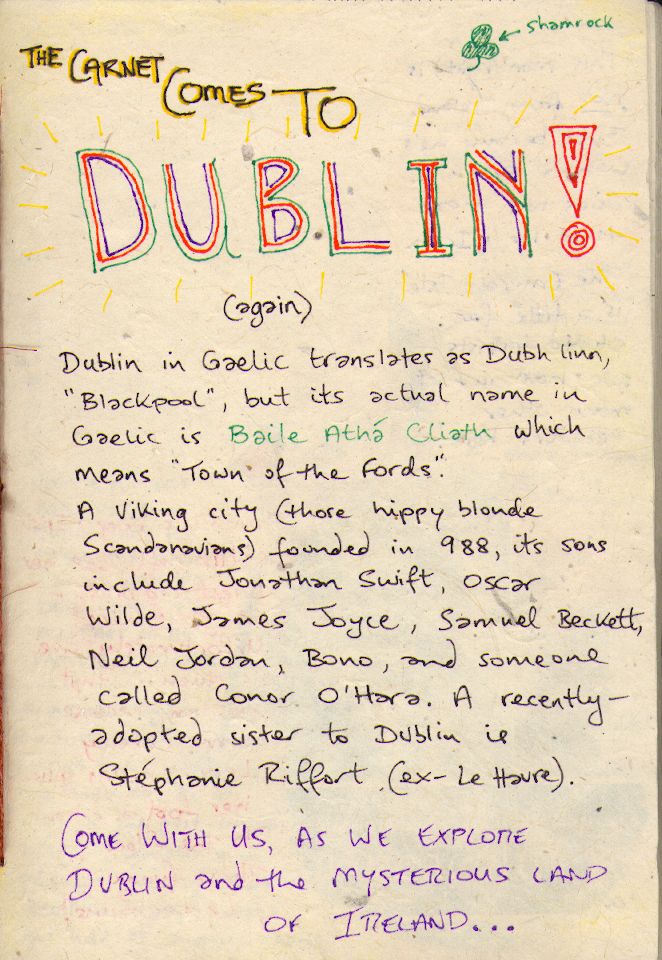 shamrock
THE CARNET COMES TO
DUBLIN!
(again)
Dublin in Gaelic translates as Dubh linn,
"Blackpool", but its actual name in
Gaelic is Baile Athá Cliath which
means "Town of the Fords".
A Viking city (those hippy blonde
Scandanavians) founded in 988, its sons
include Jonathan Swift, Oscar
Wilde, James Joyce, Samuel Beckett,
Neil Jordan, Bono, and someone
called Conor O'Hara. A recently-
adopted sister to Dublin is
Stéphanie Riffort (ex-Le Havre).
COME WITH US, AS WE EXPLORE
DUBLIN and the MYSTERIOUS LAND
OF IRELAND...